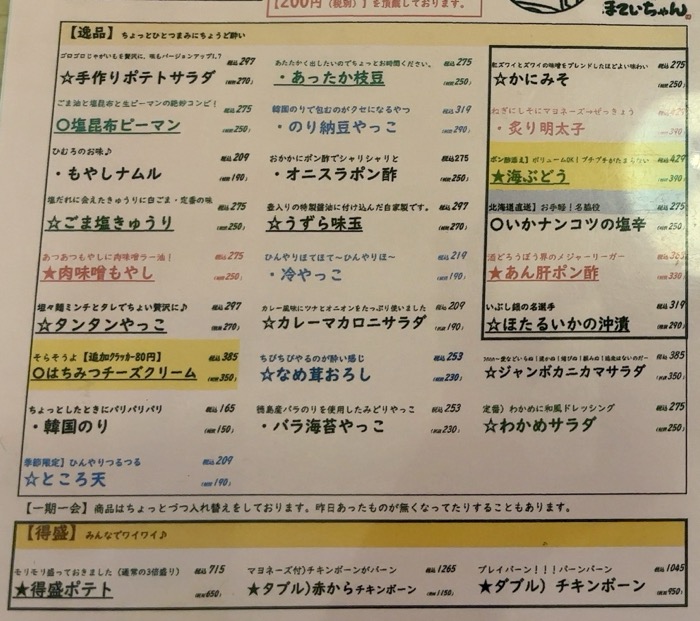 【200円（税別）】を頂戴しております。
ほていちゃん
【逸品】 ちょっとひとつまみにちょうど酔い
ゴロゴロじゃがいもを贅沢に、味もバージョンアップ!,? 税込297
☆手作りポテトサラダ (税別270)
ごま油と塩昆布と生ピーマンの絶妙コンビ! 税込275
〇塩昆布ピーマン (税別250)
ひむろのお味♪ 税込209
・もやしナムル (税別190)
塩だれに会えたきゅうりに白ごま・定番の味 税込275
☆ごま塩きゅうり (税別250)
あつあつもやしに肉味噌ラー油! 税込275
★肉味噌もやし (税別250)
坦々麺ミンチとタレでちょい贅沢に♪ 税込297
☆タンタンやっこ (税別270)
そらそうよ【追加クラッカー80円】 税込385
〇はちみつチーズクリーム (税別350)
ちょっとしたときにパリパリパリ 税込165
・韓国のり (税別150)
季節限定】ひんやりつるつる 税込209
☆ところ天 (税別190)
あたたかく出したいのでちょっとお時間ください、 税込275
・あったか枝豆 (税別250)
韓国のりで包むのがクセになるやつ 税込319
・のり納豆やっこ (税別290)
おかかにポン酢でシャリシャリと 税込275
・オニスラポン酢 (税別250)
壺入りの特製醤油に付け込んだ自家製です。 税込297
☆うずら味玉 (税別270)
ひんやりほてほて～ひんやりほ～ 税込219
・冷やっこ (税別190)
カレー風味にツナとオニオンをたっぷり使いました 税込209
☆カレーマカロニサラダ (税別190)
ちびちびやるのが酔い感じ 税込253
☆なめ茸おろし (税別230)
徳島産バラのりを使用したみどりやっこ 税込253
・バラ海苔やっこ (税別230)
紅ズワイとズワイの味噌をブレンドしたほどよい味わい 税込275
☆かにみそ (税別250)
ねぎにしそにマヨネーズ⇒ぜっきょう
・炙り明太子 (税別390)
ポン酢添え】ボリュームOK!プチプチがたまらない 税込429
★海ぶどう (税別390)
北海道直送】お手軽!名脇役 税込275
〇いかナンコツの塩辛 (税別250)
酒どろうぼう界のメジャーリーガー 税込363
★あん肝ポン酢 (税別330)
いぶし銀の名選手 税込319
☆ほたるいかの沖漬 (税別290)
税込385
☆ジャンボカニカマサラダ (税別350)
定番）わかめに和風ドレッシング 税込275
☆わかめサラダ (税別250)
【一期一会】商品はちょっとづつ入れ替えをしております。昨日あったものが無くなってたりすることもあります。
【得盛】 みんなでワイワイ♪
モリモリ盛っておきました（通常の3倍盛り） 税込715
★得盛ポテト (税別650)
マヨネーズ付)チキンボーンがバーン 税込1265
★タブル)赤からチキンボーン (税別1150)
プレイバーン!!!バーンバーン 税込1045
★ダブル）チキンボーン (税別950)